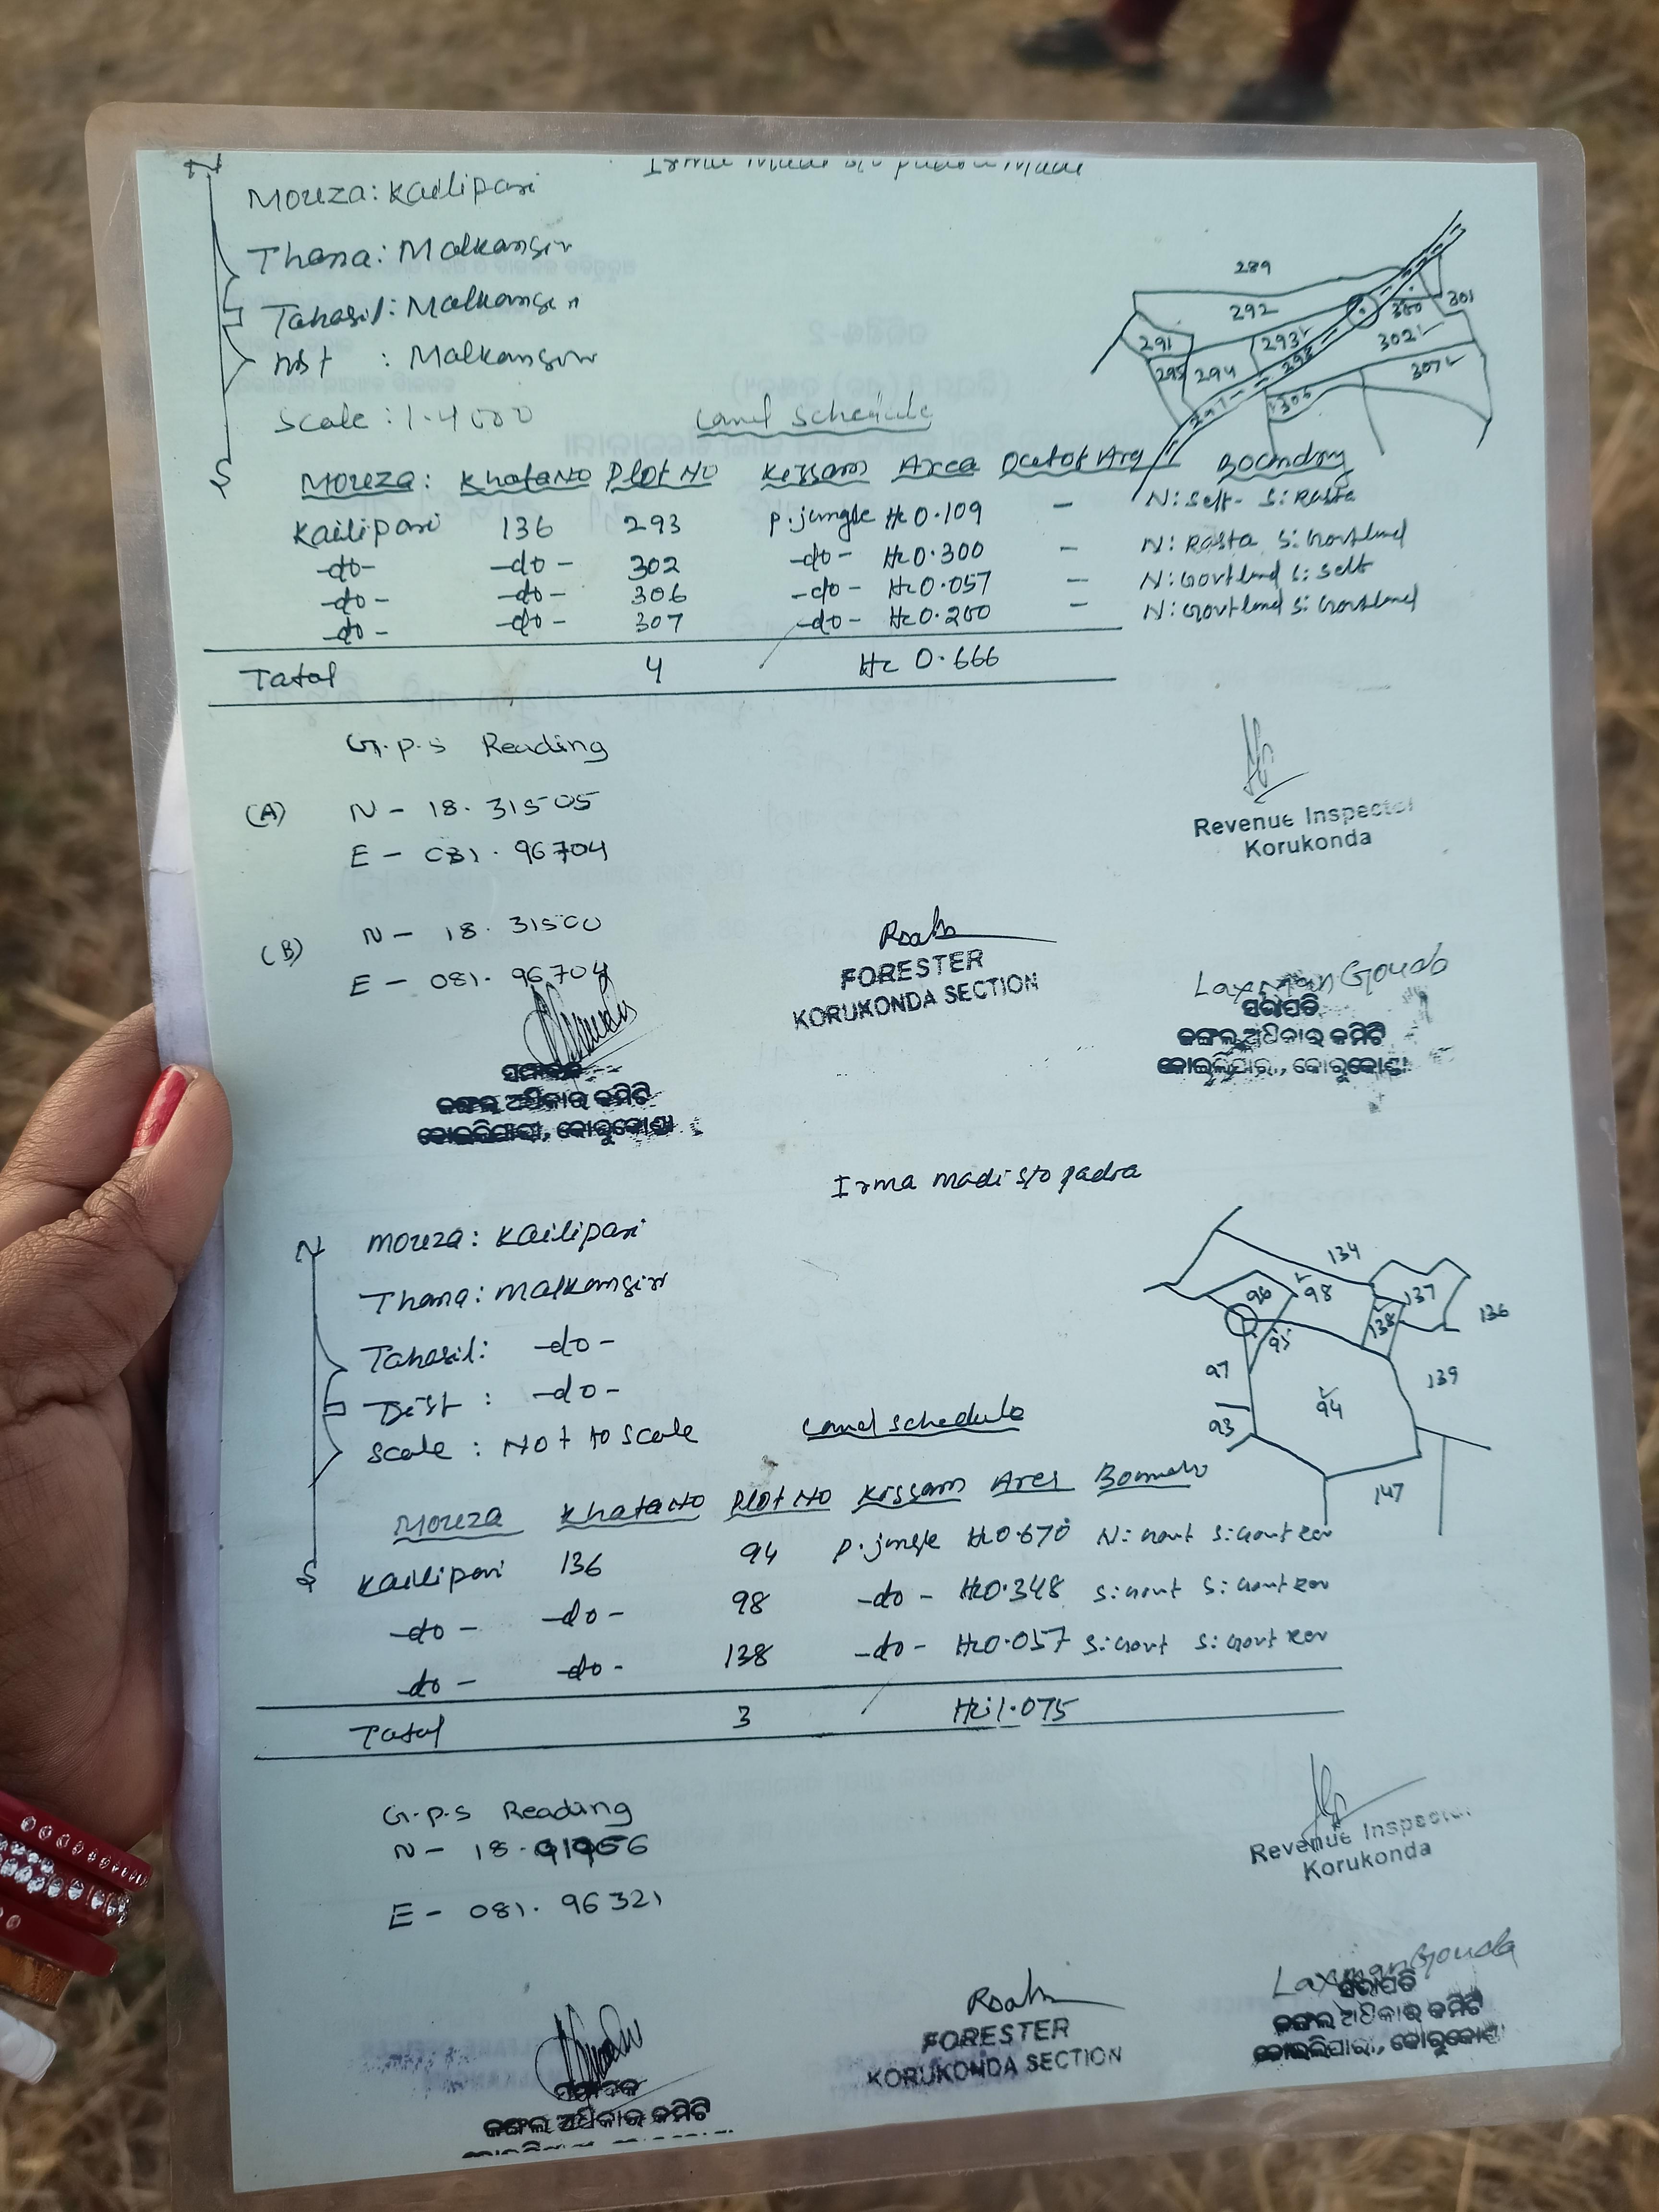 N
Mouza: Kailipari
Thana: Malkangiri
Tahasil: Malkangiri
Dist : Malkangiri
Scale : 1-4000
S
289
292
291
293
295
294
298
297
300
301
302
306
307
Land Schedule
Mouza: Khata No Plot No Kissam Area Out of Area Boundry
Kailipari 136 293 P. jungle Hc 0.109 - N: Self- S: Rasta
-do- -do- 302 -do- Hc 0.300 - N: Rasta S: Govt land
-do- -do- 306 -do- Hc 0.057 - N: Govt land S: Self
-do- -do- 307 -do- Hc 0.200 - N: Govt land S: Govt land
Total 4 Hc 0.666
G.P.S Reading
(A) N - 18. 31505
E - 081. 96704
(B) N - 18. 31500
E - 081. 96704
Revenue Inspector
Korukonda
FORESTER
KORUKONDA SECTION
Laxman Gouda
ସଭାପତି
ଜଙ୍ଗଲ ଅଧିକାର କମିଟି
କୋଇଲିପାରୀ, କୋରୁକୋଣ୍ଡା
ସମ୍ପାଦକ
ଜଙ୍ଗଲ ଅଧିକାର କମିଟି
କୋଇଲିପାରୀ, କୋରୁକୋଣ୍ଡା
Irma madi s/o padra
N
Mouza: Kailipari
Thana: Malkangiri
Tahasil: -do-
Dist : -do-
Scale : Not to Scale
S
134
96
98
137
138
136
95
97
139
94
93
147
Land schedule
Mouza Khata No Plot No Kissam Area
Kailipari 136 94 P. jungle Hc 0.670 N: Govt S: Govt
-do- -do- 98 -do- Hc 0.348 S: Govt S: Govt
-do- -do- 138 -do- Hc 0.057 S: Govt S: Govt
Total 3 Hc 1.075
G.P.S Reading
N - 18.
E - 081. 96321
Revenue Inspector
Korukonda
FORESTER
KORUKONDA SECTION
Laxman Gouda
ସଭାପତି
ଜଙ୍ଗଲ ଅଧିକାର କମିଟି
କୋଇଲିପାରୀ, କୋରୁକୋଣ୍ଡା
ସମ୍ପାଦକ
ଜଙ୍ଗଲ ଅଧିକାର କମିଟି